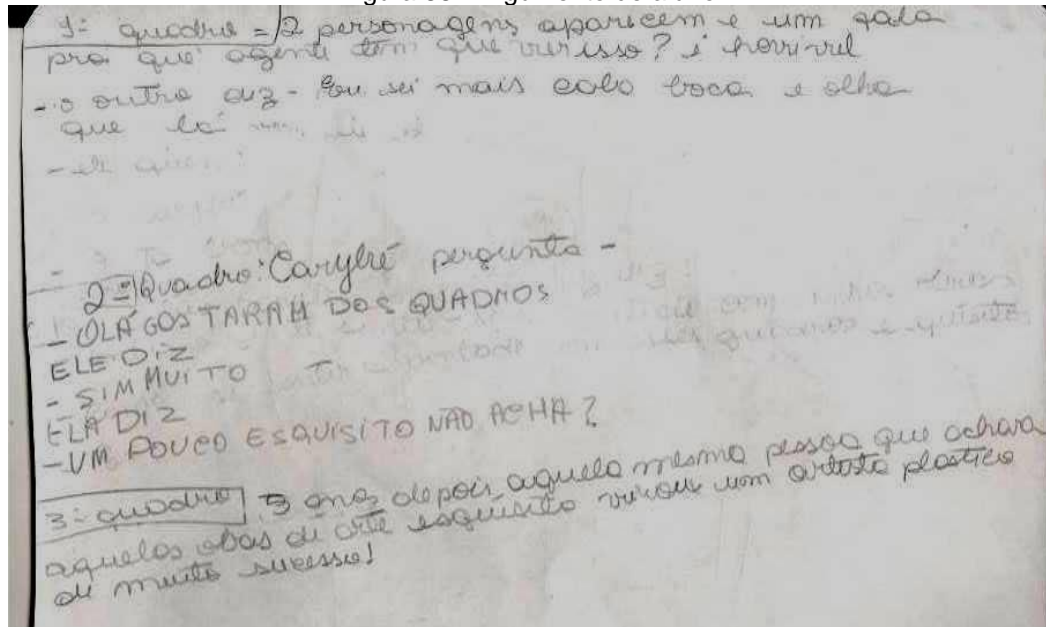 1º quadro = 2 personagens aparecem e um fala
pra que agente tem que ver isso? é horrivel
- o outro diz - Eu sei mais calo boca e olha
que lá
2º Quadro: Carybé pergunta -
- OLÁ GOSTARAM DOS QUADROS
ELE DIZ
- SIM MUITO
ELA DIZ
- UM POUCO ESQUISITO NÃO ACHA?
3º quadro 3 anos depois, aquela mesma pessoa que achava
aquelas obas de arte esquisito virou um artista plastico
de muito sucesso!